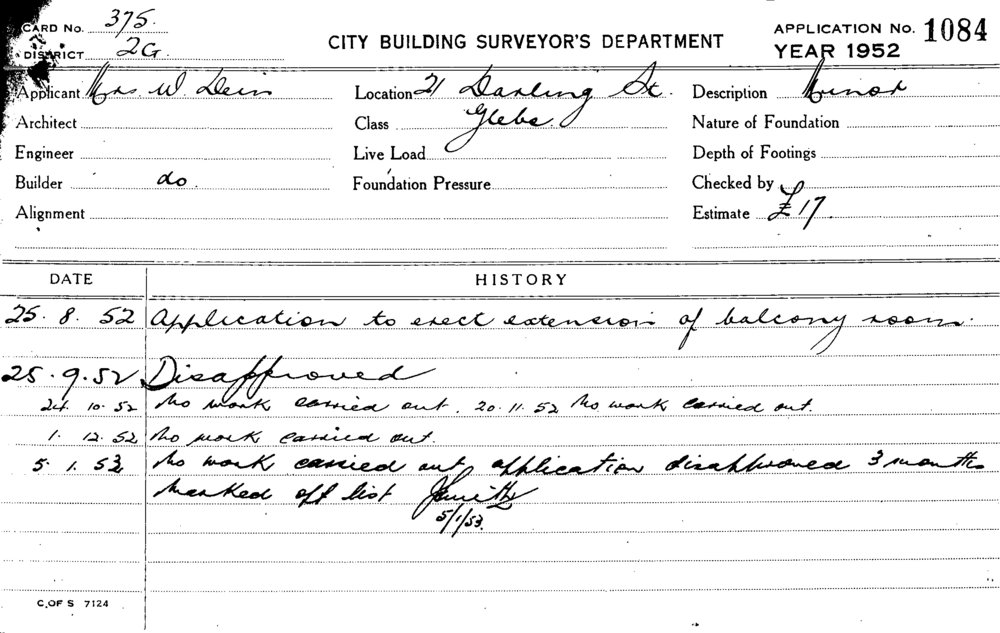 CARD No. 375.
DISTRICT 2G.
CITY BUILDING SURVEYOR'S DEPARTMENT
APPLICATION No. 1084
YEAR 1952
Applicant Mrs W. Dein Location 21 Darling St. Description Minor
Architect Class Glebe. Nature of Foundation
Engineer Live Load Depth of Footings
Builder do. Foundation Pressure Checked by
Alignment Estimate £17.
DATE HISTORY
25. 8. 52 Application to erect extension of balcony room.
25. 9. 52 Disapproved
24. 10. 52 No work carried out. 20. 11. 52 No work carried out.
1. 12. 52 No work carried out.
5. 1. 53 No work carried out application disapproved 3 months
marked off list
5/1/53.
C. OF S 7124